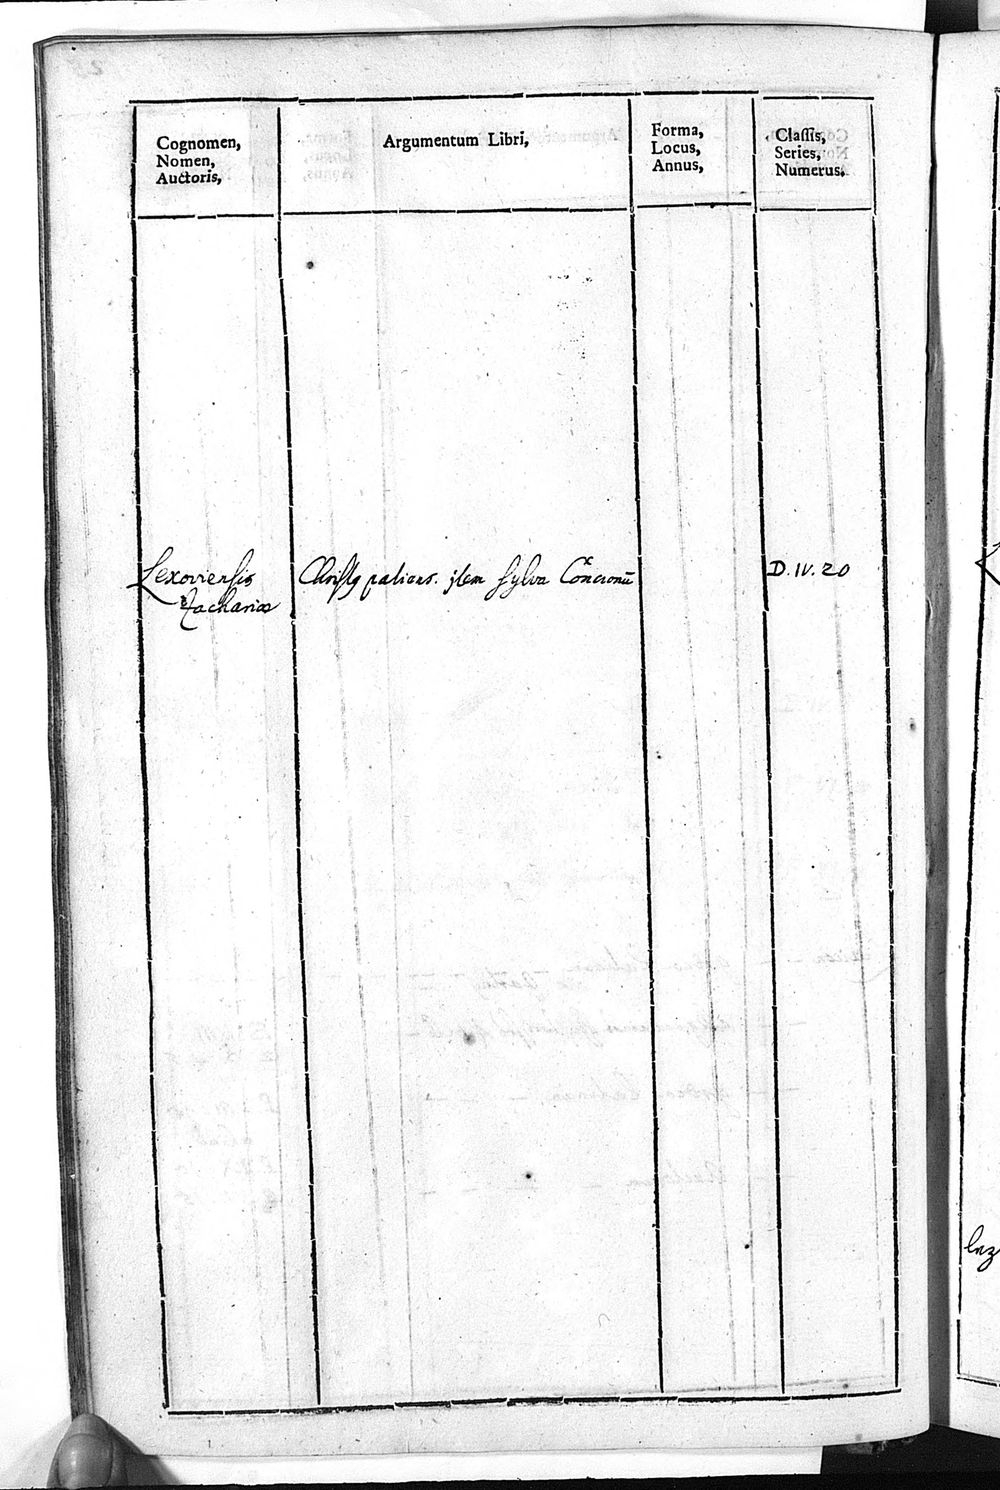 Cognomen,
Nomen,
Auctoris,
Argumentum Libri,
Forma,
Locus,
Annus,
Classis,
Series,
Numerus.
Lexoviensis
Zacharias
Christꝯ patiens. jtem sylva Concionū
D. IV. 20